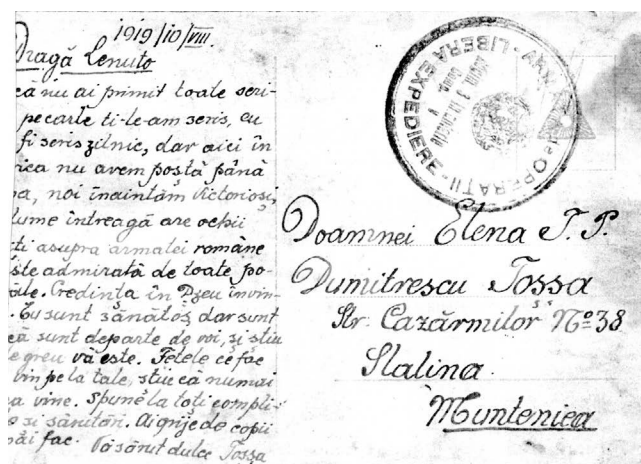 1919/10/VIII.
Dragă Lenuto
că nu ai primit toate scri-
pe carle ti-le-am scris, eu
fi scris zilnic, dar aici în
nu avem postă până
noi înaintăm victorioși,
lume întreagă are ochii
asupra armatei române
ste admirată de toate po-
Credința în Dzeu învin-
Eu sunt sănătos, dar sunt
că sunt departe de voi, și stiu
greu vă este. Fetele ce fac
vin pe la tale, stiu că numai
vine. Spune la toti compli-
si sărutări. Ai grije de copii
fac. Vă sărut dulce Tossa
LIBERA EXPEDIERE
OPERAȚII
Doamnei Elena T. P.
Dumitrescu Tossa
Str. Cazărmilor No 38
Slatina
Munteniea